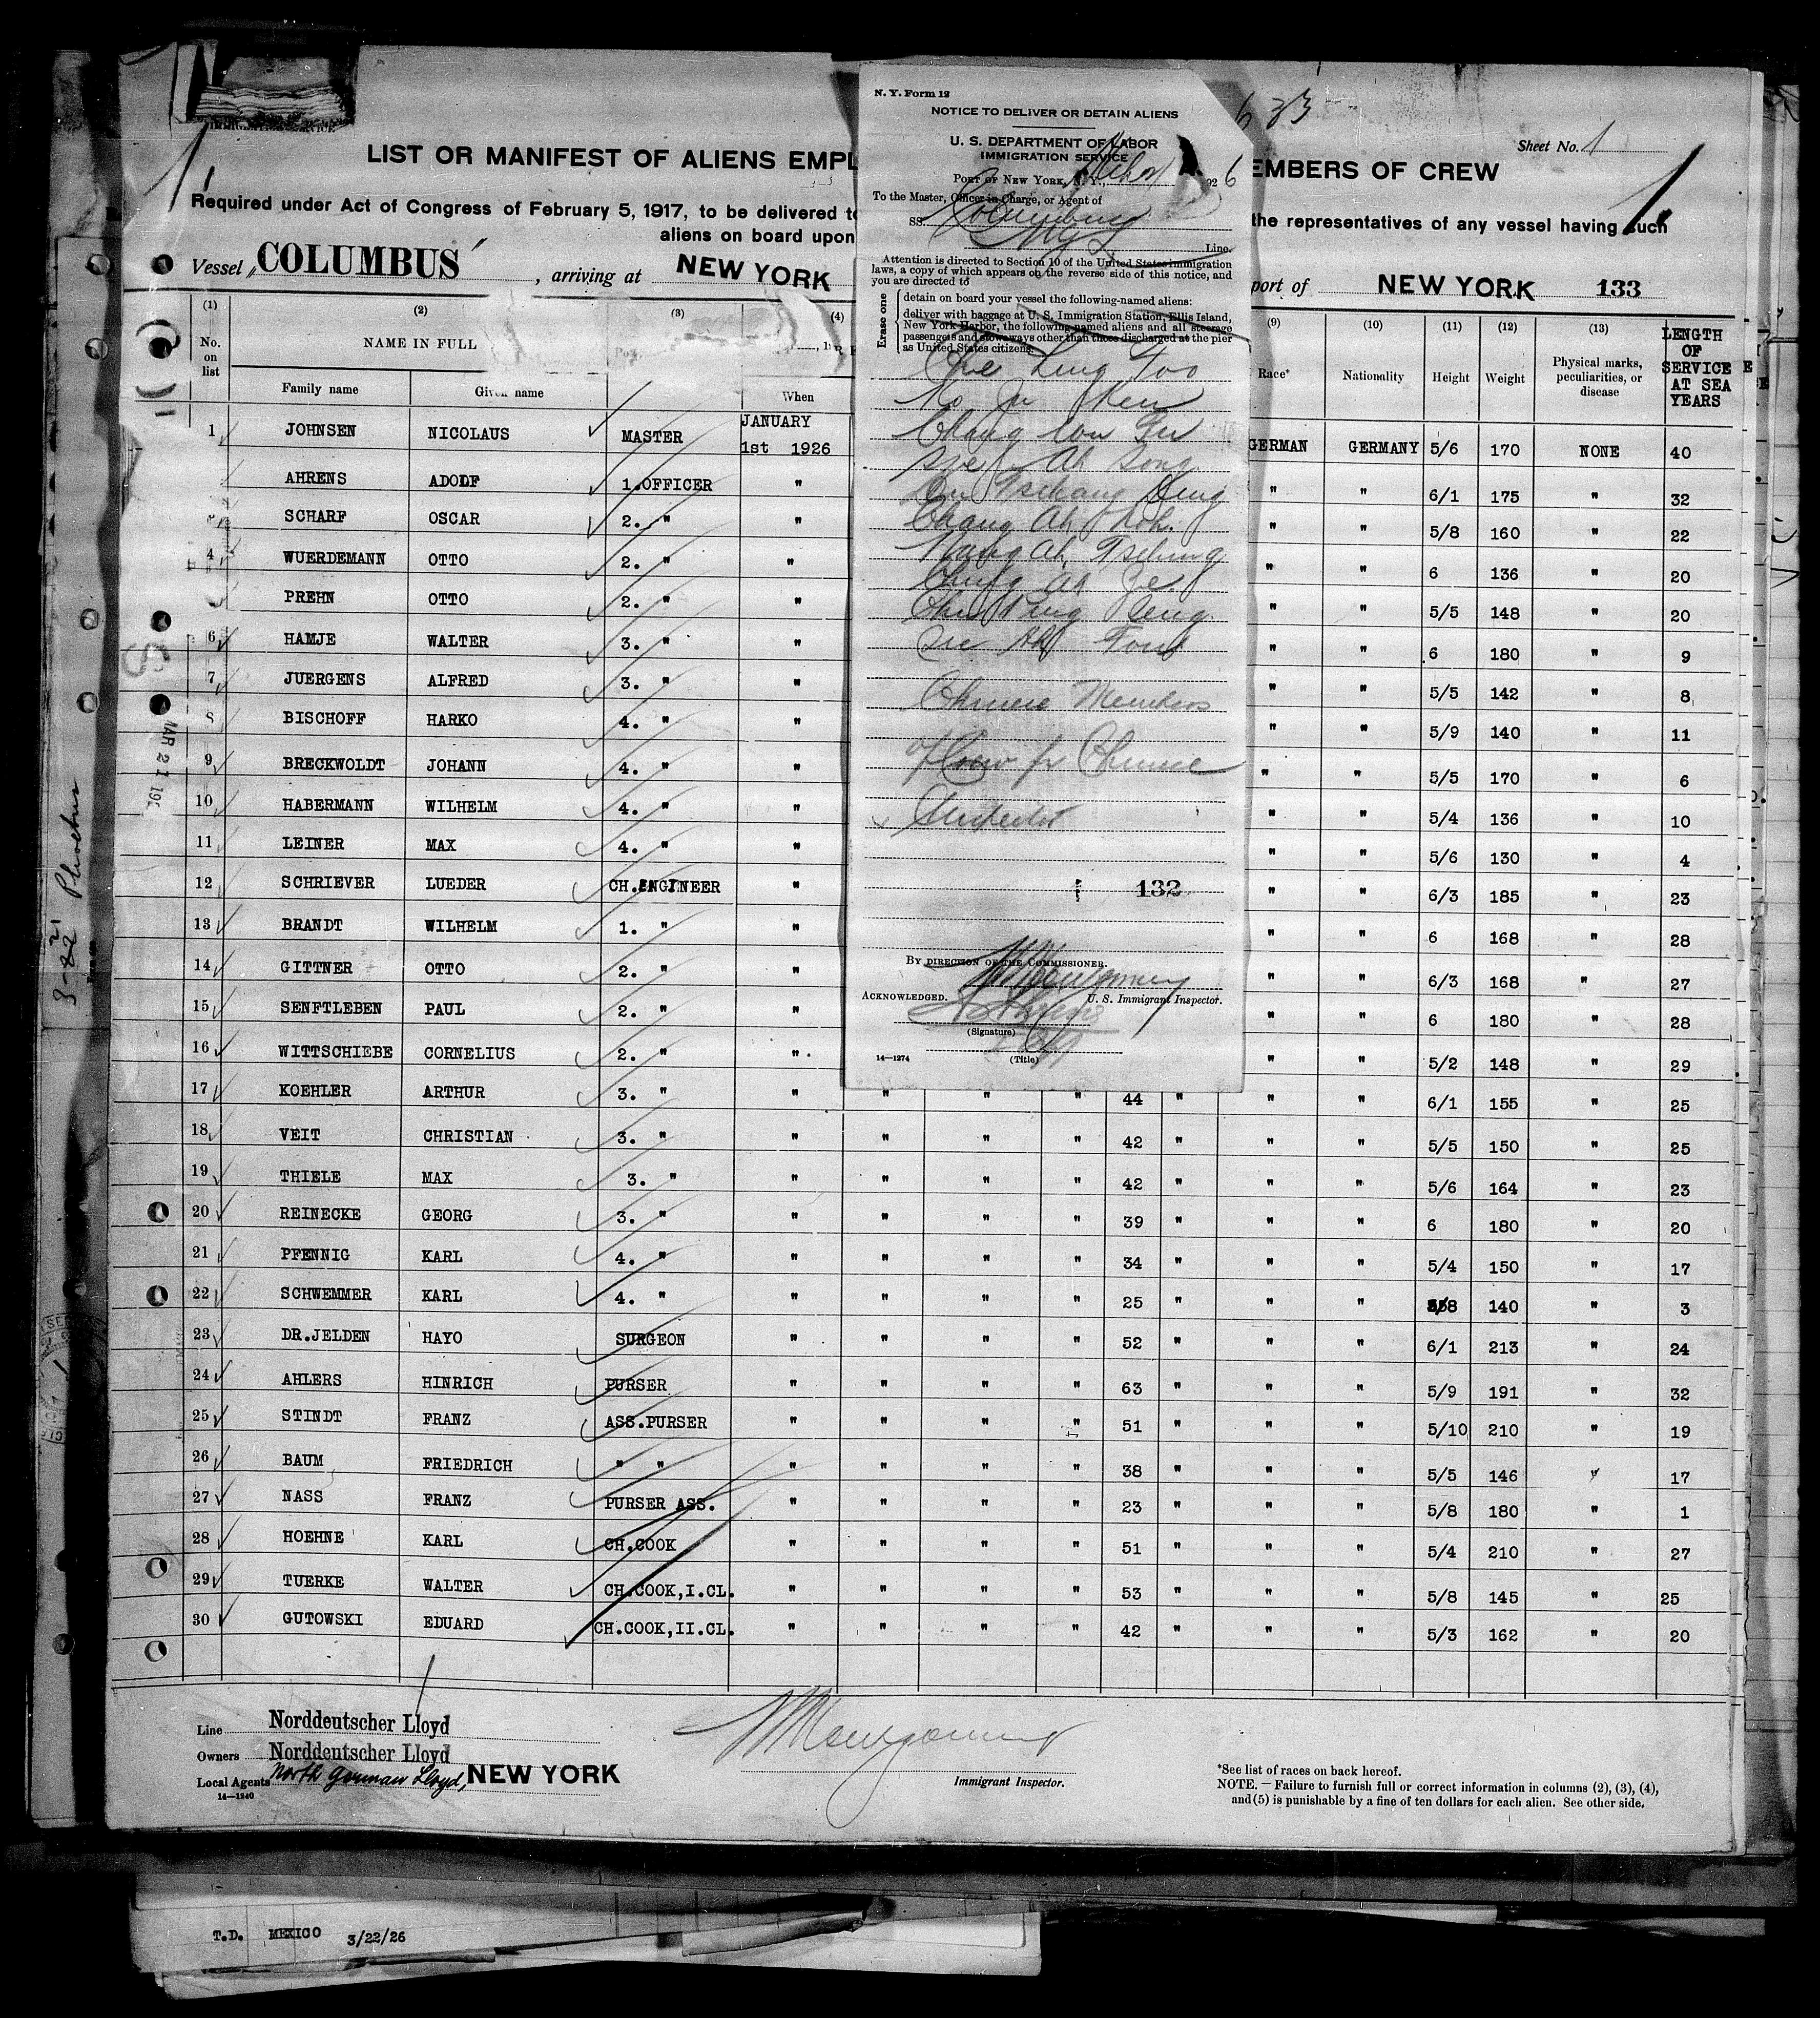 633
Sheet No. 1
LIST OR MANIFEST OF ALIENS EMPL
EMBERS OF CREW
Required under Act of Congress of February 5, 1917, to be delivered to
the representatives of any vessel having such
aliens on board upon
Vessel "COLUMBUS", arriving at NEW YORK
port of NEW YORK 133
N. Y. Form 12
NOTICE TO DELIVER OR DETAIN ALIENS
U. S. DEPARTMENT OF LABOR
IMMIGRATION SERVICE
PORT OF NEW YORK, N. Y., 1926
To the Master, Officer in Charge, or Agent of
SS. Columbus
N G L Line.
Attention is directed to Section 10 of the United States immigration
laws, a copy of which appears on the reverse side of this notice, and
you are directed to
Erase one
detain on board your vessel the following-named aliens:
deliver with baggage at U. S. Immigration Station, Ellis Island,
New York Harbor, the following-named aliens and all steerage
passengers and stowaways other than those discharged at the pier
as United States citizens:
Ling Foo
Chang
Ah Song
Tschang
Chang Ah
Ah Tschung
Ah
Chinese Members
of Crew for Chinese
Inspector
132
BY DIRECTION OF THE COMMISSIONER.
Montgomery
ACKNOWLEDGED. U. S. Immigrant Inspector.
(Signature)
14—1274 (Title)
(1) (2) (3) (4) (9) (10) (11) (12) (13) LENGTH OF SERVICE AT SEA YEARS
No. on list NAME IN FULL Race* Nationality Height Weight Physical marks, peculiarities, or disease
Family name Given name When
1 JOHNSEN NICOLAUS MASTER JANUARY 1st 1926 GERMAN GERMANY 5/6 170 NONE 40
AHRENS ADOLF 1.OFFICER " " " 6/1 175 " 32
SCHARF OSCAR 2. " " " " 5/8 160 " 22
4 WUERDEMANN OTTO 2. " " " " 6 136 " 20
PREHN OTTO 2. " " " " 5/5 148 " 20
6 HAMJE WALTER 3. " " " " 6 180 " 9
7 JUERGENS ALFRED 3. " " " " 5/5 142 " 8
8 BISCHOFF HARKO 4. " " " " 5/9 140 " 11
9 BRECKWOLDT JOHANN 4. " " " " 5/5 170 " 6
10 HABERMANN WILHELM 4. " " " " 5/4 136 " 10
11 LEINER MAX 4. " " " " 5/6 130 " 4
12 SCHRIEVER LUEDER CH.ENGINEER " " " 6/3 185 " 23
13 BRANDT WILHELM 1. " " " " 6 168 " 28
14 GITTNER OTTO 2. " " " " 6/3 168 " 27
15 SENFTLEBEN PAUL 2. " " " " 6 180 " 28
16 WITTSCHIEBE CORNELIUS 2. " " " " 5/2 148 " 29
17 KOEHLER ARTHUR 3. " " " " " 44 " " " 6/1 155 " 25
18 VEIT CHRISTIAN 3. " " " " " 42 " " " 5/5 150 " 25
19 THIELE MAX 3. " " " " " 42 " " " 5/6 164 " 23
20 REINECKE GEORG 3. " " " " " 39 " " " 6 180 " 20
21 PFENNIG KARL 4. " " " " " 34 " " " 5/4 150 " 17
22 SCHWEMMER KARL 4. " " " " " 25 " " " 5/8 140 " 3
23 DR.JELDEN HAYO SURGEON " " " " 52 " " " 6/1 213 " 24
24 AHLERS HINRICH PURSER " " " " 63 " " " 5/9 191 " 32
25 STINDT FRANZ ASS.PURSER " " " " 51 " " " 5/10 210 " 19
26 BAUM FRIEDRICH " " " " " " 38 " " " 5/5 146 " 17
27 NASS FRANZ PURSER ASS. " " " " 23 " " " 5/8 180 " 1
28 HOEHNE KARL CH.COOK " " " " 51 " " " 5/4 210 " 27
29 TUERKE WALTER CH.COOK,I.CL. " " " " 53 " " " 5/8 145 " 25
30 GUTOWSKI EDUARD CH.COOK,II.CL. " " " " 42 " " " 5/3 162 " 20
MAR 21 192
Phoebus
Line Norddeutscher Lloyd
Owners Norddeutscher Lloyd
Local Agents North German Lloyd, NEW YORK
14—1240
Montgomery
Immigrant Inspector.
*See list of races on back hereof.
NOTE. — Failure to furnish full or correct information in columns (2), (3), (4),
and (5) is punishable by a fine of ten dollars for each alien. See other side.
T.D. MEXICO 3/22/26